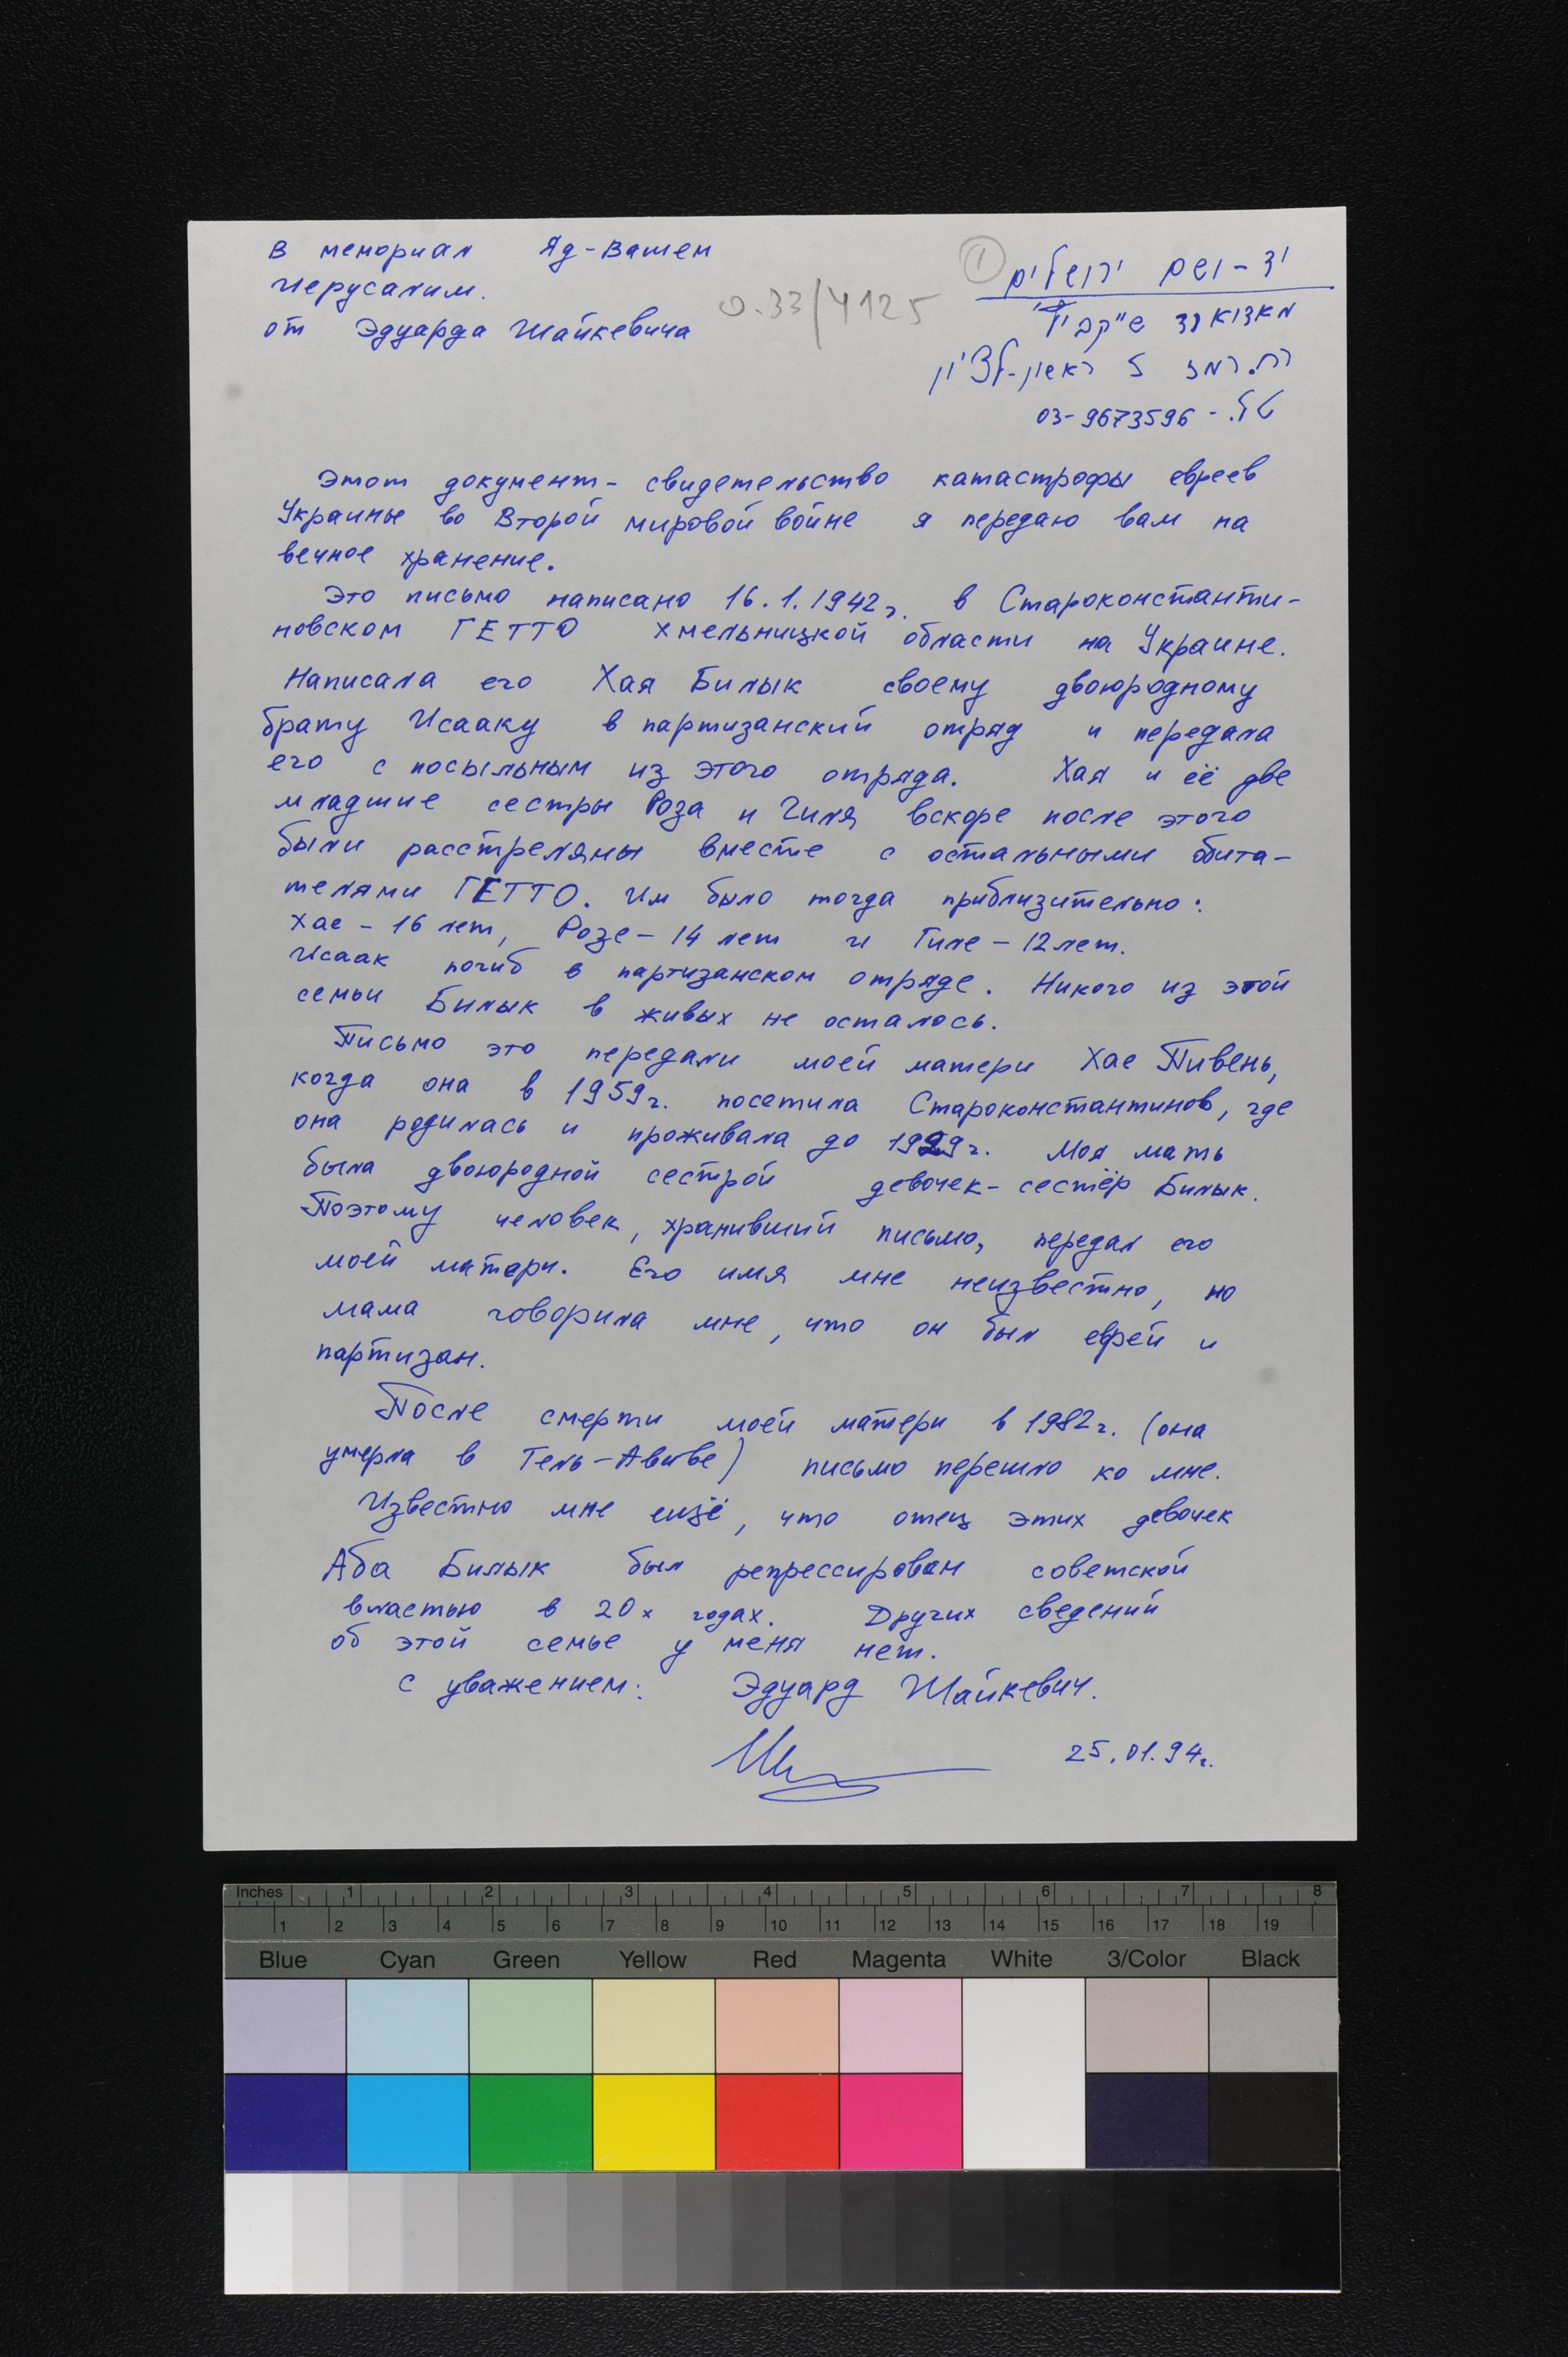 В мемориал Яд-Вашем
Иерусалим.
от Эдуарда Шайкевича
0.33/4125
1
יד - ושם ירושלים
מאדוארד שייקביץ'
רח. רמז 5 ראשון-לציון
טל. - 03-9673596
Этот документ - свидетельство катастрофы евреев
Украины во Второй мировой войне я передаю вам на
вечное хранение.
Это письмо написано 16.1.1942г. в Староконстанти-
новском ГЕТТО Хмельницкой области на Украине.
Написала его Хая Билык своему двоюродному
брату Исааку в партизанский отряд и передала
его с посыльным из этого отряда. Хая и её две
младшие сестры Роза и Гиля вскоре после этого
были расстреляны вместе с остальными обита-
телями ГЕТТО. Им было тогда приблизительно:
Хае - 16 лет, Розе - 14 лет и Гиле - 12 лет.
Исаак погиб в партизанском отряде. Никого из этой
семьи Билык в живых не осталось.
Письмо это передали моей матери Хае Пивень,
когда она в 1959г. посетила Староконстантинов, где
она родилась и проживала до 1929г. Моя мать
была двоюродной сестрой девочек-сестёр Билык.
Поэтому человек, хранивший письмо, передал его
моей матери. Его имя мне неизвестно, но
мама говорила мне, что он был еврей и
партизан.
После смерти моей матери в 1982г. (она
умерла в Тель-Авиве) письмо перешло ко мне.
Известно мне ещё, что отец этих девочек
Аба Билык был репрессирован советской
властью в 20х годах. Других сведений
об этой семье у меня нет.
С уважением: Эдуард Шайкевич.
25.01.94г.
Inches 1 2 3 4 5 6 7 8
1 2 3 4 5 6 7 8 9 10 11 12 13 14 15 16 17 18 19
Blue Cyan Green Yellow Red Magenta White 3/Color Black